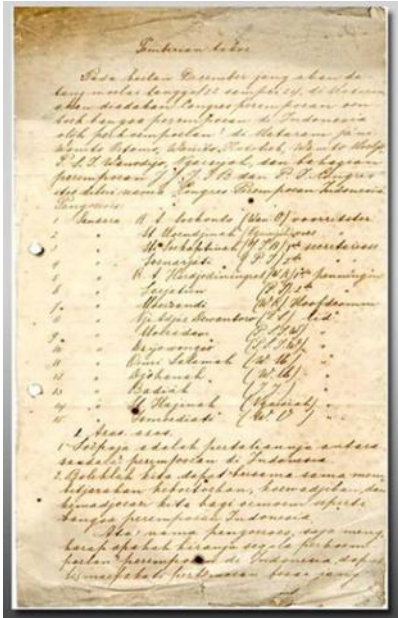 Pemberian taoe
Pada boelan December jang akan da
tang moelai tanggal 22 sampai 24, di Mataram
akan diadakan Congres perempoean oen
toek bangsa perempoean di Indonesia
oleh perkoempoelan² di Mataram ja'ni
Wanito Oetomo, Wanito Katholiek, Wanito Moeljo
P.S.I. Wanodijo, Ngaisijah, dan bahagian
perempoean J.J., J.I.B dan P.T. Congres
nama Congres Perempoean Indonesia
Pengoeroes:
1 Saudara R. A. Soekonto (Wan O) voorzitster
2 " St. Moendjinah (Ngaisijah)
3 " St. Soekaptinah (J.I.B) 1e secretaresse
4 " Soenarjati (P.T) 2e "
5 " R. A. Hardjodiningrat (W K) 1e penningm
6 " Soejatien (P.T) 2e "
7 " (W K) Hoofdcomm
8 " Nji Adjar Dewantoro (T S) lid
9 " Moeridan (P.S.I.W)
10 " (P.S.I.W) "
11 " Oemi Salamah (W. M) "
12 " Djohanah (W. M) "
13 " Badiah (J. J) "
14 " St Hajinah (Ngaisijah) "
15 " Ismoediati (W. O) "
1. Soepaja adalah pertaliannja antara
segala² perempoean di Indonesia
2. Bolehlah kita dapat bersama sama mem
bitjarakan keboetoehan, koewadjiban, dan
kemadjoean kita bagi semoea
bangsa perempoean Indonesia
Atas nama pengoeroes, saja meng
harap apakah kiranja segala perkoem
poelan perempoean di Indonesia dapat
besar jang